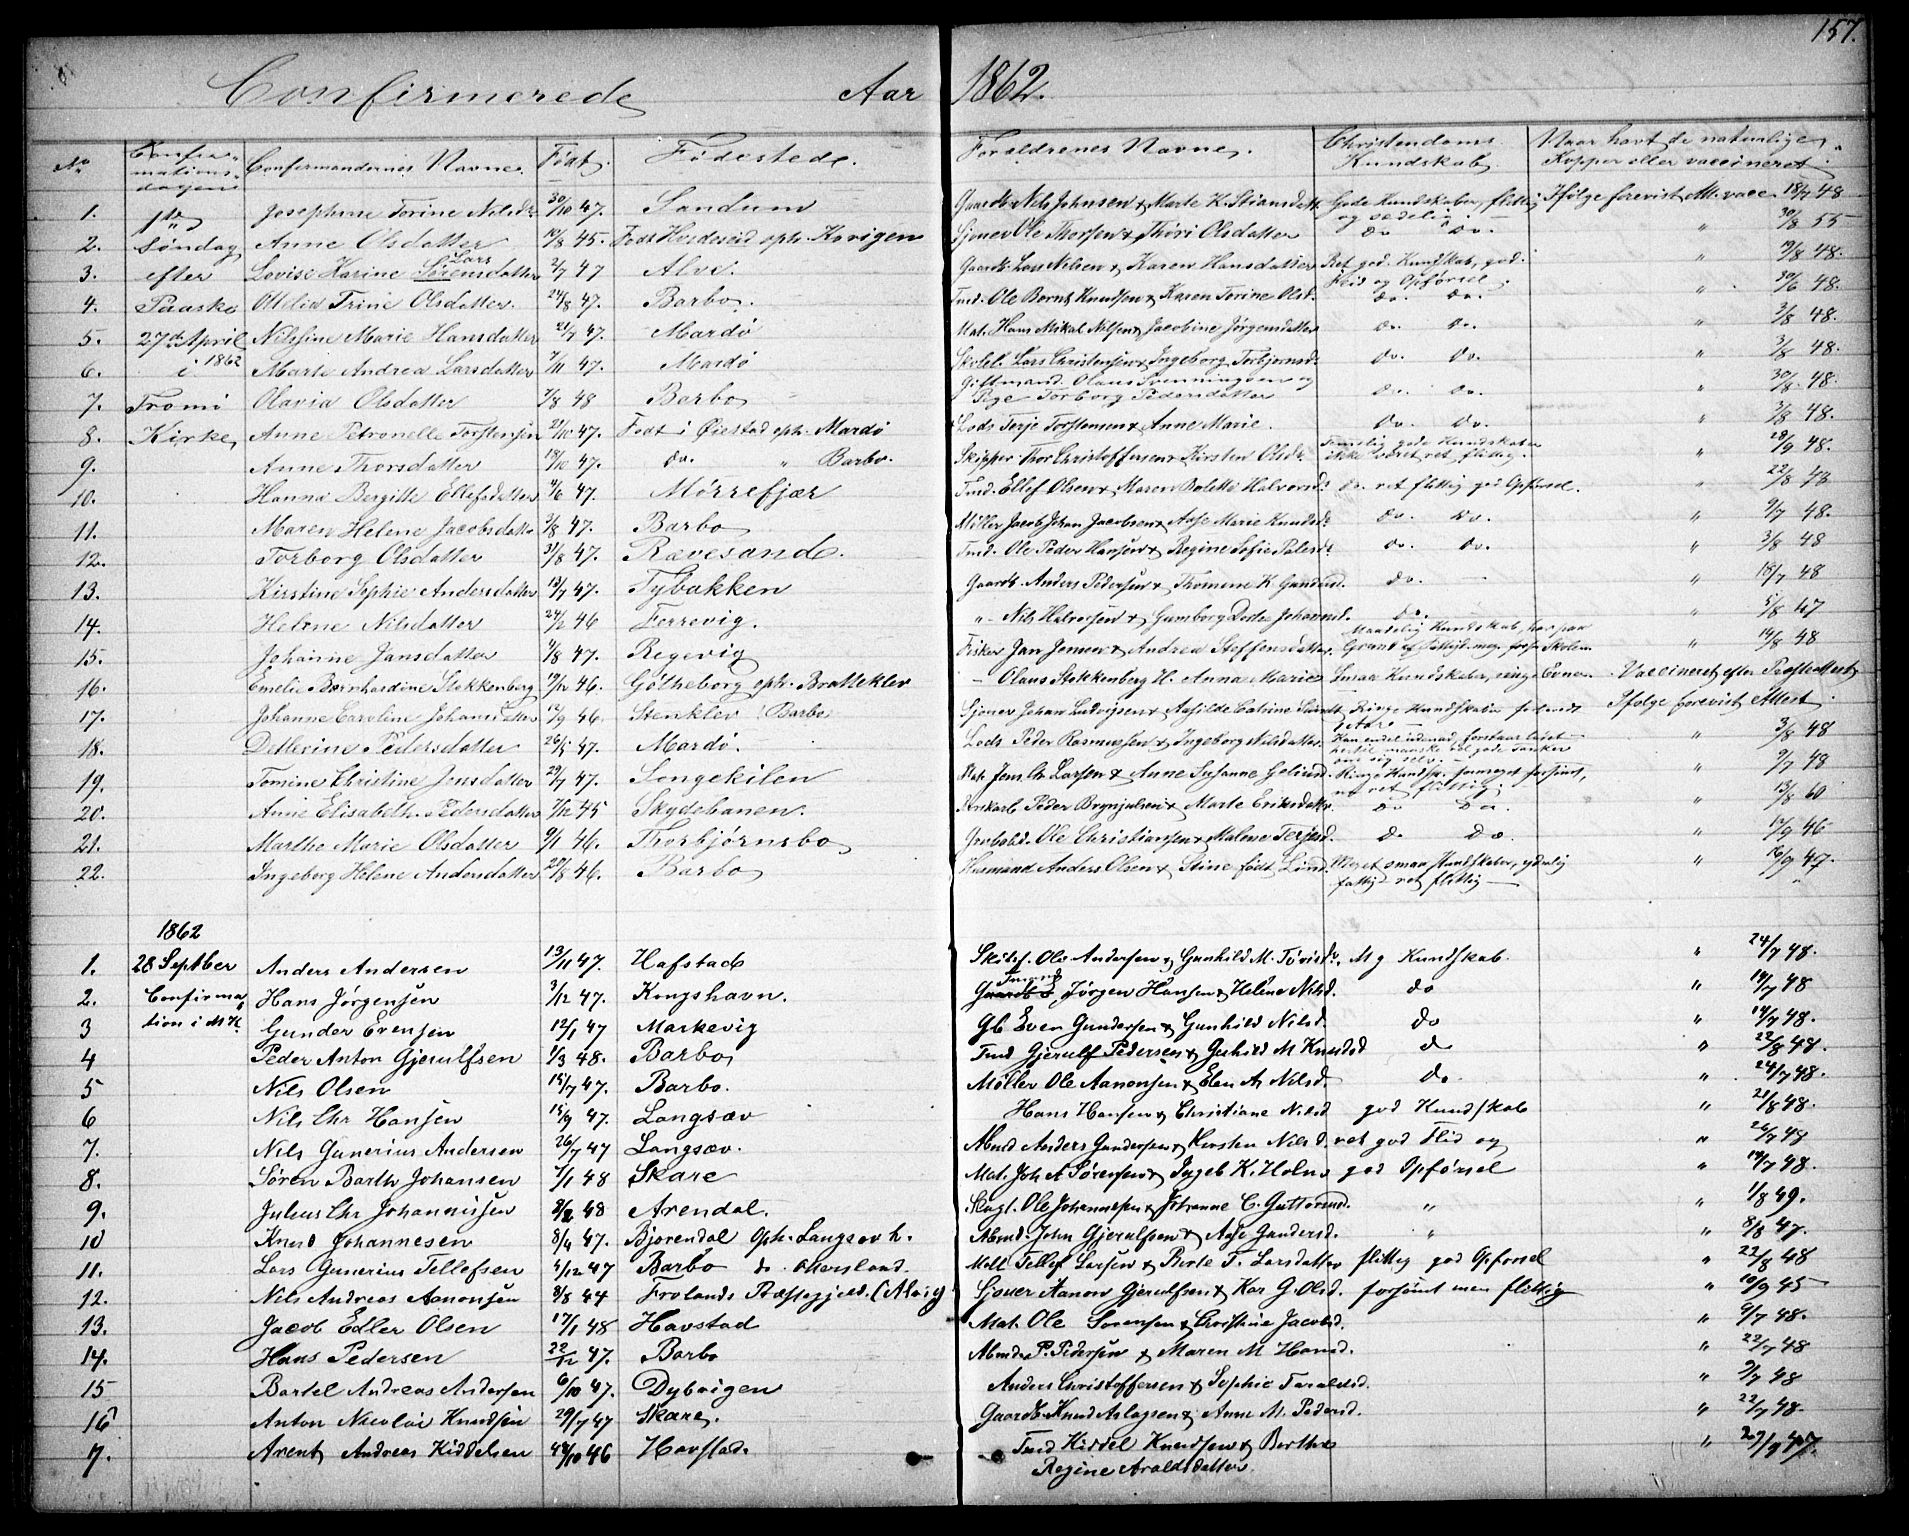 157.
Confirmerede Aar 1862.
No Confirmationsdagen Confirmandernes Navne. Født. Fødestede. Forældrenes Navne. Christendoms Kundskab. Naar havt de naturlige Kopper eller vaccineret.
1. 1ste Josephine Torine Nilsdr 30/10 47. Sandum Gaardb. Nils Johnsen & Marte K. Stiansdatt. Gode Kundskaber, flittig og sædelig. Ifølge forevist Att. vacc. 18/7 48
2. Søndag Anne Olsdatter 10/8 45. Født Hvideseid oph. Kovigen Sjøner Ole Thorsen & Thöri Olsdatter Do. Do. " 30/8 55
3. efter Lovise Karine Sørensdatter Lars 2/7 47 Alve. Gaardb. Lars Nilsen & Karen Hansdatter Ret god Kundskab, god Flid og Opførsel. " 19/8 48.
4. Paaske Ottilia Trine Olsdatter. 24/8 47. Barbo. Tmd. Ole Bernt Knudsen & Karen Torine Olsd. Do. Do. " 30/6 48.
5. 27de April Nilsine Marie Hansdatter 21/7 47. Mardö Mat. Hans Mikal Nilsen & Jacobine Jørgensdatter Do. Do. " 3/8 48.
6. i 1862 Marte Andrea Larsdatter 7/11 47. Mardö Skolel. Lars Christensen & Ingeborg Torbjørnsd. Do. Do. " 3/8 48.
7. Tromö Olavia Olsdatter 7/8 48 Barbo Giftmand. Olaus Svenningsen og Pige Torborg Pedersdatter Do. Do. " 30/8 48.
8. Kirke, Anne Petronelle Torstensen 22/10 47. Født i Øiestad oph. Mardö Lods Terje Torstensen & Anne Marie. Do. Do. " 3/8 48.
9. Anne Thorsdatter 18/10 47. Do. " Barbo. Skipper Thor Christoffersen & Kirsten Olsdr. Temelig gode Kundskaber ikke været ret flittig. " 28/9 48.
10. Hanna Bergitte Ellefsdatter 4/6 47. Mörrefjær Tmd. Ellef Olsen & Maren Bolette Halvorsdr. Do. ret flittig god Opførsel. " 22/8 48
11. Maren Helene Jacobsdatter 3/8 47. Barbo Möller Jacob Johan Jacobsen & Aase Marie Knudsdr. Do. Do. " 9/7 48.
12. Torborg Olsdatter 31/8 47. Rævesand. Tmd. Ole Peder Hansen & Regine Sofie Palesdr. Do. Do. " 3/8 48
13. Kirstine Sophie Andersdatter 13/7 47. Tybakken Gaardb. Anders Pedersen & Thomine K. Gundersd. Do. - " 18/7 48
14. Helene Nilsdatter 24/2 46 Ferrevig. " Nils Halvorsen & Gumborg Dorte Johannd. Do. " 5/8 47
15. Johanne Jansdatter 4/8 47. Regevig Fisker Jan Jensen & Andrea Steffensdatter. Maadelig Kundskab, har paa Grund af Fattigd. meg. fors. Skolen " 14/8 48
16. Emelie Bernhardine Stokkenberg 19/12 46. Götheborg oph. Bratteklev - Olaus Stokkenberg H. Anna Marie Smaa Kundskaber, ringe Evner Vaccineret efter Præsteattest
17. Johanne Caroline Johansdatter 12/9 46. Stenklev (Barbo Sjøner Johan Ludvigsen & Aasilde Catrine Ringe Kundskaber Ifølge forevist Attest.
18. Ditlevine Pedersdatter 26/5 47. Mardö. Lods Peder Rasmussen & Ingeborg Nilsdatter. " 3/8 48
19. Tomine Christine Jensdatter 29/7 47. Songekilen Mat. Jens Chr. Larsen & Anne Susanne Gelius d. Ringe Kundsk. formeget forsømt, nu ret flittig. " 9/7 48
20. Anne Elisabeth Pedersdatter 7/12 45 Skydebanen. Peder Brynjulsen & Marte Eriksdatter Do Do " 13/8 60
21. Marthe Marie Olsdatter 9/1 46. Thorbjörnsbo Ole Christiansen & Malene Terjesd. Do Do " 17/9 46
22. Ingeborg Helene Andersdatter 20/8 46. Barbo Husmand Anders Olsen & Stine født Lund. Meget smaa Kundskaber, ydmlig fattig ret flittig " 16/9 47.
1862
1. 28 Septber Anders Andersen 13/11 47. Hafstad Ole Andersen & Gunhild M. Tövisdr. M g Kundskab. " 24/7 48.
2. Confirma Hans Jörgensen 3/12 47. Kongshavn. Gaardb Tmd Jörgen Hansen & Helene Nilsd. do " 19/7 48
3 tion i M K. Gunder Evensen 12/1 47 Markevig Gb Even Gundersen & Gunhild Nilsd. do " 19/7 48.
4 Peder Anton Gjerulfsen 1/3 48. Barbo, Tmd Gjerulf Pedersen & Guhild M Knudsd do " 22/8 48.
5 Nils Olsen 15/7 47. Barbo. Møller Ole Aanonsen & Elen A. Nilsd. do " 24/7 48.
6 Nils Chr Hansen 15/9 47. Langsæv Hans Hansen & Christiane Nilsd god Kundskab " 28/8 48.
7. Nils Gunerius Andersen 26/7 47 Langsæv. Abmd Anders Gundersen & Kirsten Nilsd. ret god Flid og " 26/7 48
8. Sören Barth Johansen 7/1 48 Skare Mat. Joh A Sørensen & Ingeb K. Holm god Opførsel " 19/7 48.
9. Julius Chr Johannisen 8/2 48 Arendal. Ole Johannesen & Johanne C. Guttormd. " " 1/8 49.
10 Knud Johannesen 8/4 47. Bjorendal Oph. Langsæv h. Abmd. John Gjerulfsen & Aase Gundersd. " " 8/8 47.
11. Lars Gunerius Tellefsen 4/12 47 Barbo do Mat Tellef Larsen & Berte T. Larsdatter flittig god Opførsel " 22/8 48
12. Nils Andreas Aanonsen 8/8 44 Frolands Præstegjeld. Sjøner Aanon Gjerulfsen & Kar G. Olsd. forsømt men flittig " 19/9 45
13. Jacob Edler Olsen 17/1 48 Havstad Mat. Ole Sørensen & Christine Jacobsd. " 9/7 48.
14. Hans Pedersen 22/12 47. Barbo Abmd P. Pedersen & Maren M Hansd. " 22/7 48
15 Bartel Andreas Andersen 6/10 47. Dybvigen Anders Christoffersen & Sophie Taraldsd. " 9/7 48
16 Anton Nicolai Knudsen 29/7 47 Skare. Gaardb Knud Aslagsen & Anne M. Pedersd. " 22/7 48.
17. Arent Andreas Kiddelsen 10 46 Havstad. Tmd Kiddel Knudsen & Berthe " 9 47.
Regine Araldsdatter.